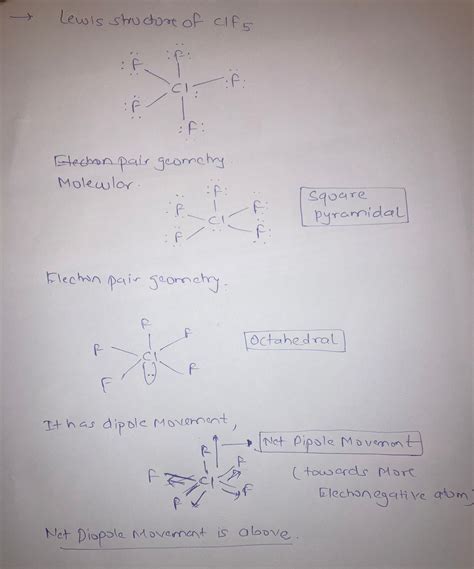 → Lewis structure of ClF5
:F: :F: :F:
Cl:
:F: :F:
Electron pair geometry
Molecular.
:F: :F: :F:
Cl
:F: :F:
Square
pyramidal
Electron pair geometry.
F
F F
Cl
F F
:
Octahedral
It has dipole Movement,
Net Dipole Movement
F
F F
Cl
F F
(towards More
Electronegative atom)
Net Diopole Movement is above.